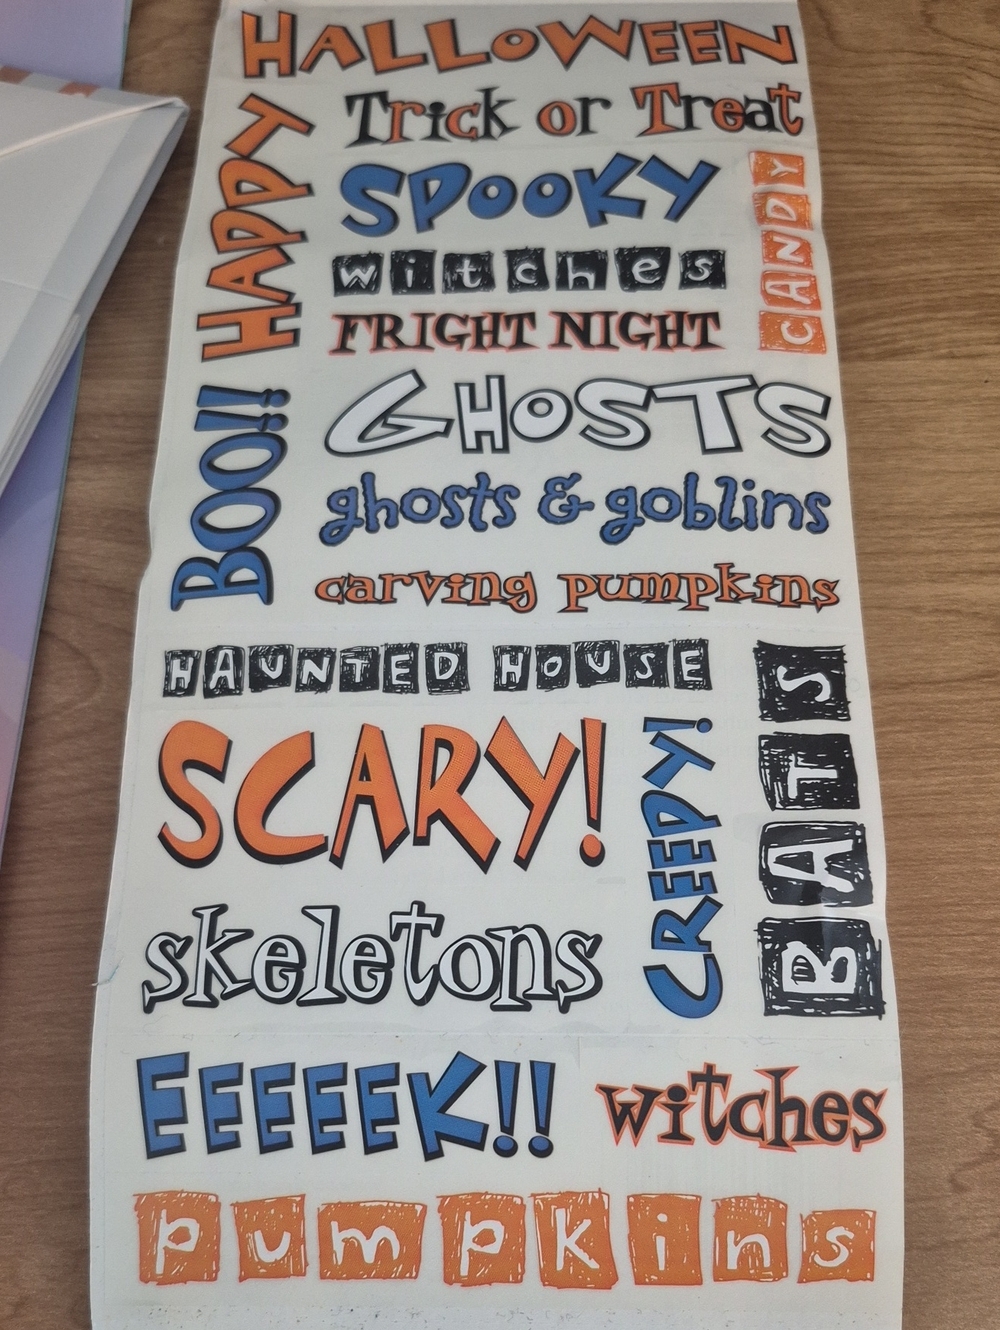 HALLOWEEN
HAPPY
Trick or Treat
SPOOKY
CANDY
witches
FRIGHT NIGHT
BOO!!
GHOSTS
ghosts & goblins
carving pumpkins
HAUNTED HOUSE
BATS
SCARY!
CREEPY!
skeletons
EEEEEK!!
witches
pumpkins